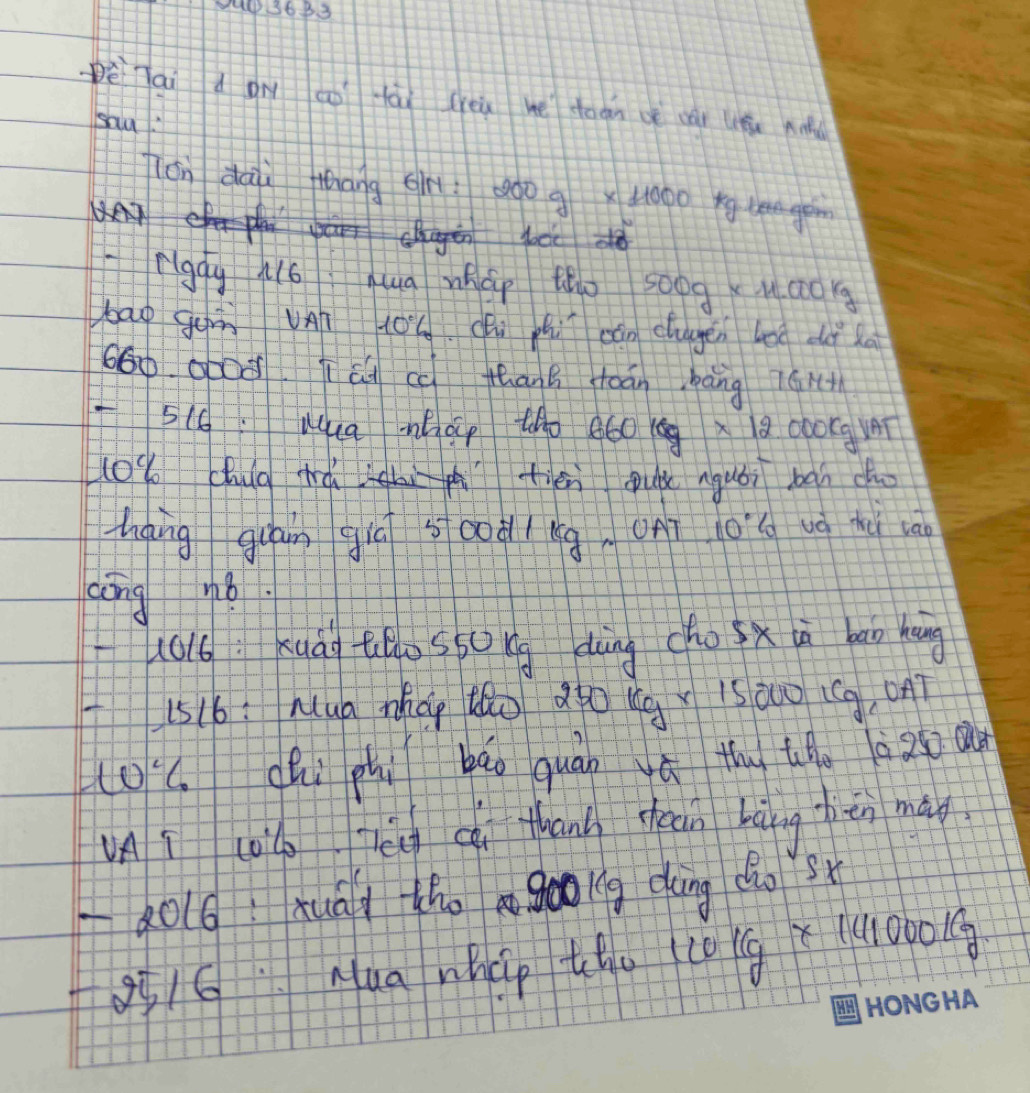 3633
Đề: Tại 1 DN có tài liệu kế toán về vật liệu như
sau:
Tồn đầu tháng 6/N: 200g x 11000 kg
VAT chi phí vận chuyển bốc dỡ
- Ngày 1/6: Mua nhập kho 500g x 11.000kg
bao gồm VAT 10%. chi phí vận chuyển bốc dỡ là
660.000đ. Tất cả thanh toán bằng TGNH.
- 5/6: Mua nhập kho 660 kg x 12.000kg VAT
10% chưa trả chi phí tiền được người bán cho
hàng giảm giá 500đ/kg, VAT 10% và trừ vào
công nợ.
- 10/6: xuất kho 550 kg dùng cho SX và bán hàng
- 15/6: Mua nhập kho 250 kg x 15000 kg, VAT
10% chi phí bảo quản và thu kho là 250.000đ
VAT 10%. Tất cả thanh toán bằng tiền mặt.
- 20/6: xuất kho 900 kg dùng cho SX
- 25/6: Mua nhập kho 110 kg x 141000 kg.
HH HONG HA